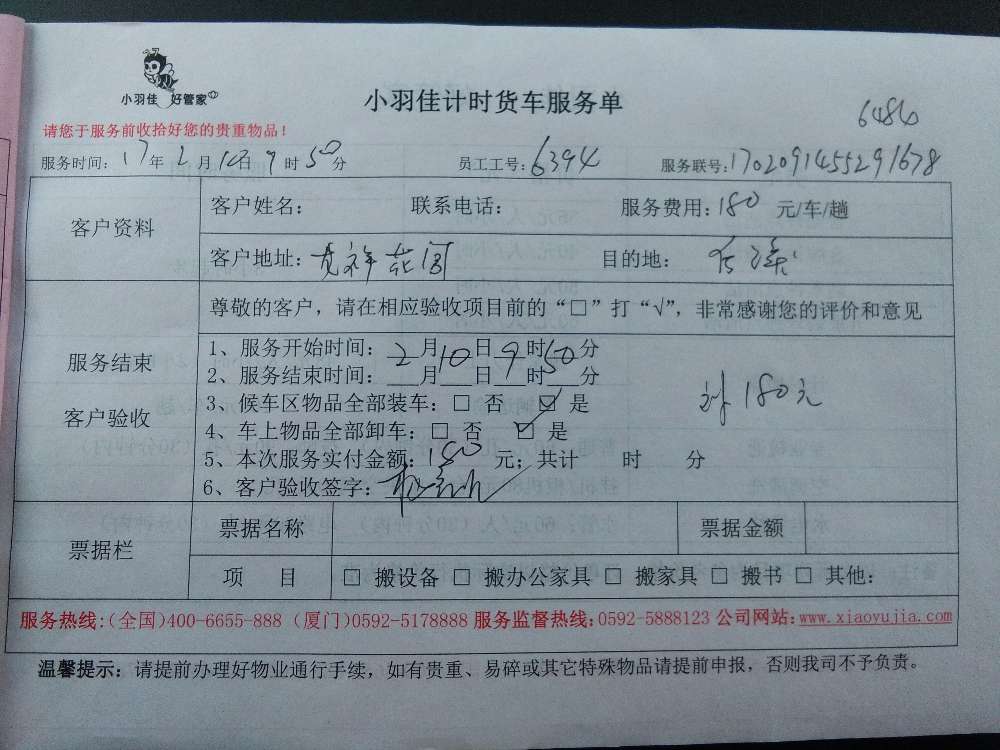 小羽佳 好管家
小羽佳计时货车服务单
6486
请您于服务前收拾好您的贵重物品！
服务时间：17年2月10日9时50分 员工工号：6394 服务联号：1702091455291678
客户资料
客户姓名： 联系电话： 服务费用：180 元/车/趟
客户地址：龙祥花园 目的地：
服务结束
客户验收
尊敬的客户，请在相应验收项目前的“□”打“√”，非常感谢您的评价和意见
1、服务开始时间：2月10日9时50分
2、服务结束时间：___月___日___时___分
3、候车区物品全部装车：□ 否 □ 是
4、车上物品全部卸车：□ 否 □ 是
5、本次服务实付金额：180 元；共计 时 分
6、客户验收签字：
计180元
票据栏
票据名称 票据金额
项 目 □ 搬设备 □ 搬办公家具 □ 搬家具 □ 搬书 □ 其他：
服务热线：(全国)400-6655-888 (厦门)0592-5178888 服务监督热线：0592-5888123 公司网站：www.xiaoyujia.com
温馨提示：请提前办理好物业通行手续，如有贵重、易碎或其它特殊物品请提前申报，否则我司不予负责。